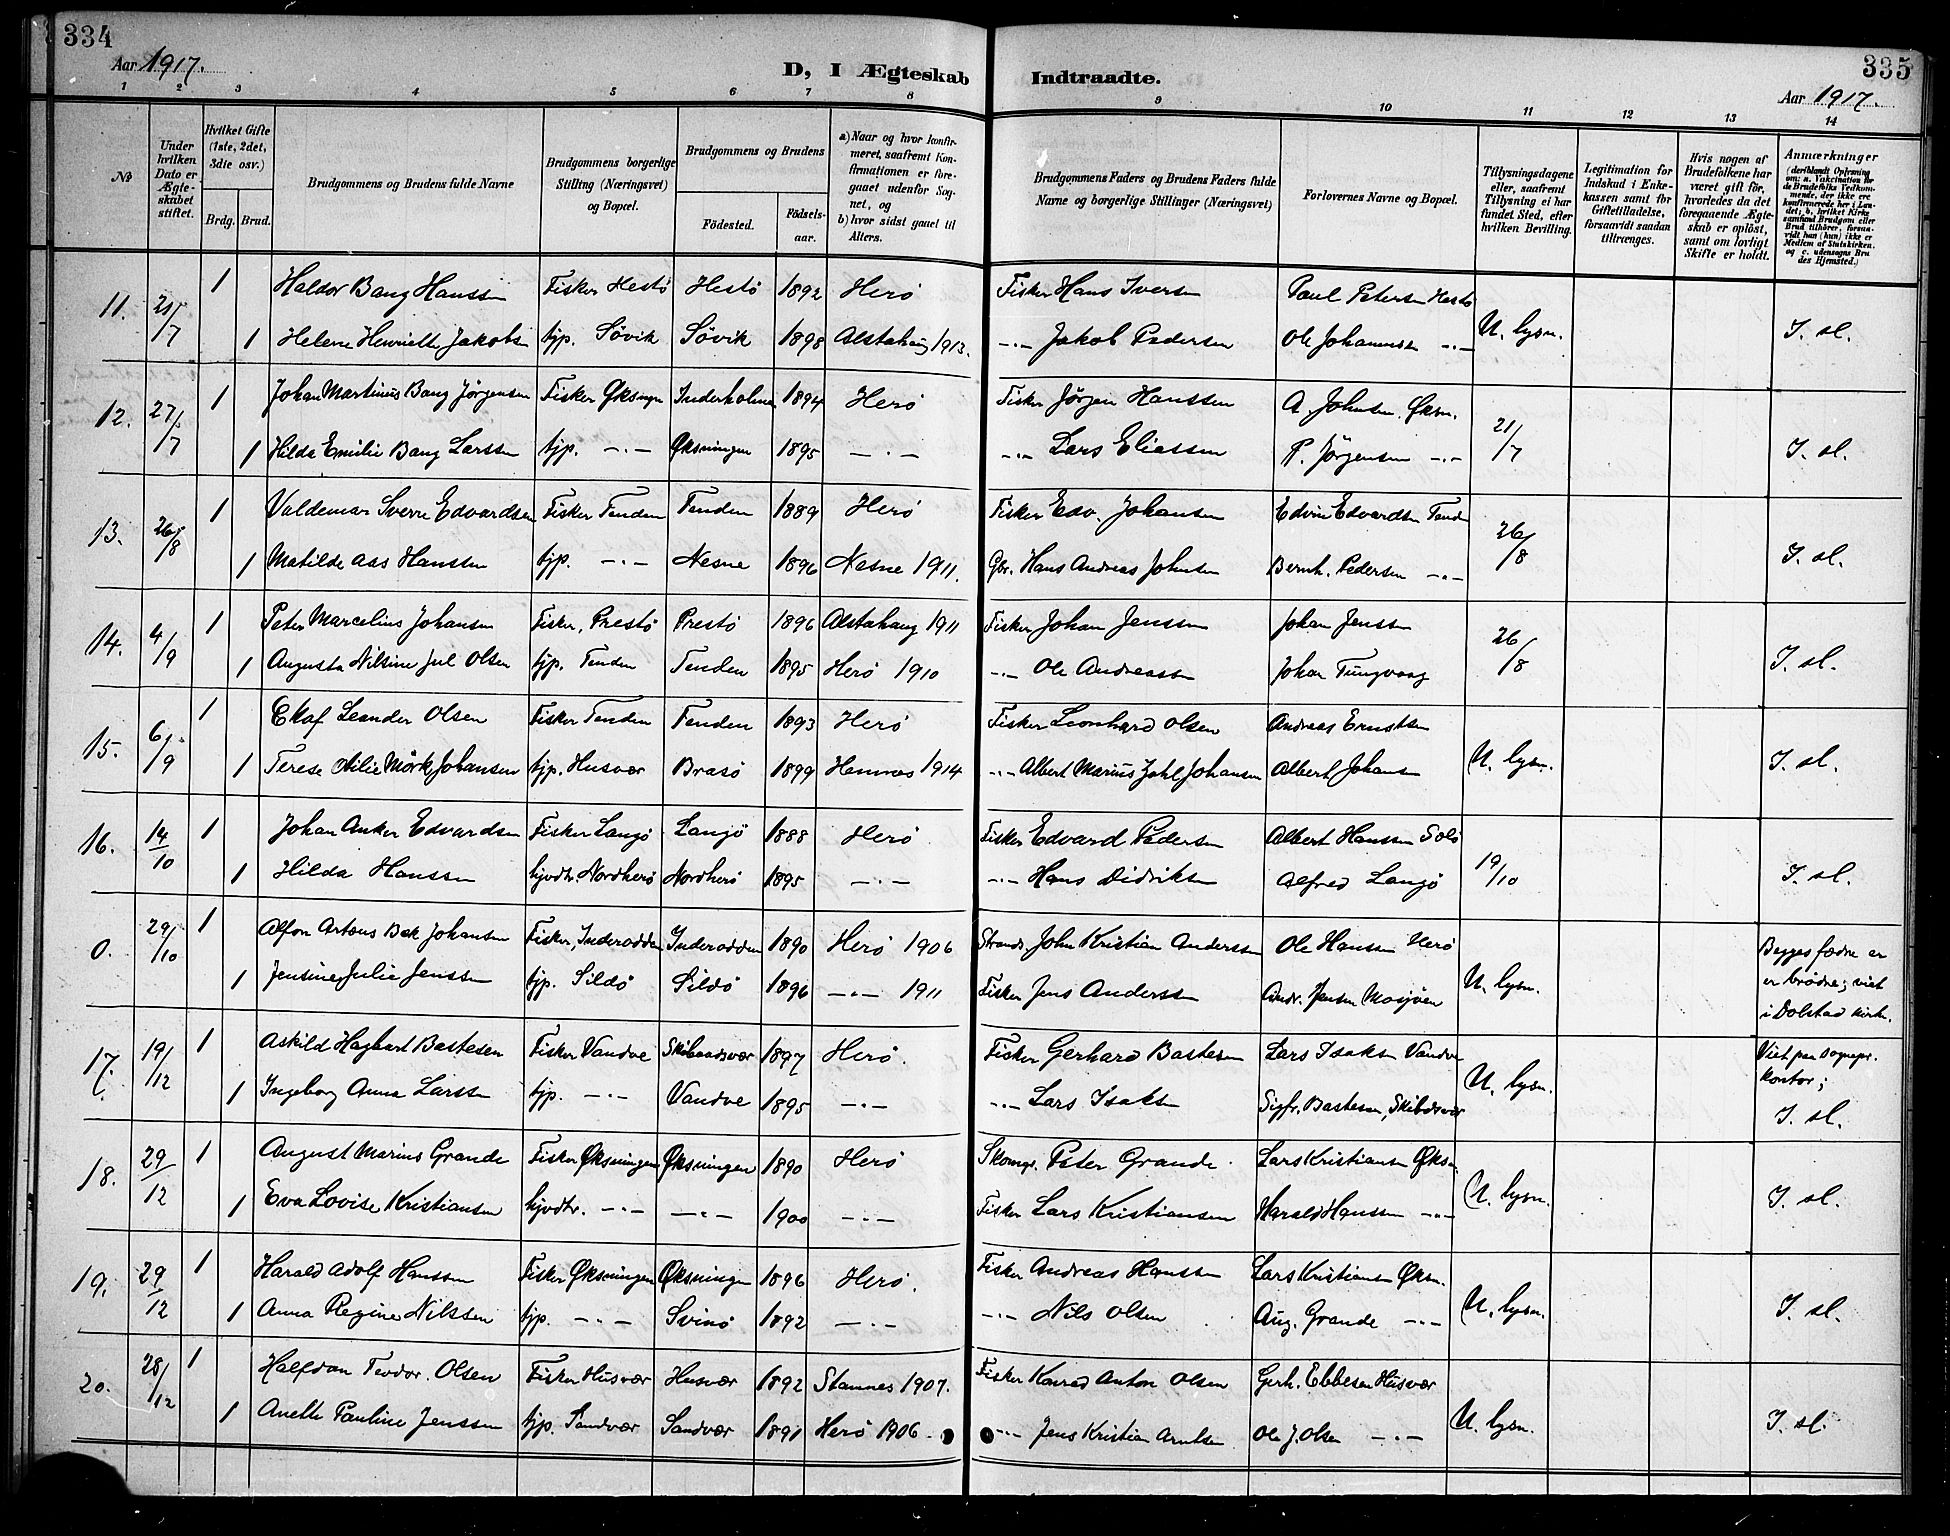 334
Aar 1917.
D, I Ægteskab
1 2 3 4 5 6 7 8
№
Under hvilken Dato er Ægteskabet stiftet.
Hvilket Gifte (1ste, 2det, 3die osv.)
Brdg. Brud.
Brudgommens og Brudens fulde Navne
Brudgommens borgerlige Stilling (Næringsvei) og Bopæl.
Brudgommens og Brudens
Fødested.
Fødselsaar.
a) Naar og hvor konfirmeret, saafremt Konfirmationen er foregaaet udenfor Sognet, og
b) hvor sidst gaaet til Alters.
Indtraadte.
335
Aar 1917.
9 10 11 12 13 14
Brudgommens Faders og Brudens Faders fulde Navne og borgerlige Stillinger (Næringsvei)
Forlovernes Navne og Bopæl.
Tillysningsdagene eller, saafremt Tillysning ei har fundet Sted, efter hvilken Bevilling.
Legitimation for Indskud i Enkekassen samt for Giftetilladelse, forsaavidt saadan tiltrænges.
Hvis nogen af Brudefolkene har været gift før, hvorledes da det foregaaende Ægteskab er opløst, samt om lovligt Skifte er holdt.
Anmærkninger (deriblandt Oplysning om: a. Vakcination for de Brudefolks Vedkommende, der ikke ere konfirmerede her i Landet; b. hvilket Kirkesamfund Brudgom eller Brud tilhører, forsaavidt han (hun) ikke er Medlem af Statskirken, og c. udensogns Brudes Hjemsted.)
11. 7 1 Haldor Bang Hanssen Fisker Hestö Hestö 1892 Herö Fisker Hans Iversen Paul Petersen Hestö U. lysn.
1 Helene Henriette Jakobsen tjp. Sövik Sövik 1898 Alstahaug 1913. -"- Jakob Pedersen Ole Johannesen -"- I. sl.
12. 27/7 1 Johan Martinus Bang Jørgensen Fisker Øksningen Inderholmen 1894 Herö Fisker Jørgen Hanssen A. Johnsen, Øksn. 21/7
1 Hilda Emilie Bang Larssen tjp. -"- Øksningen 1895 -"- -"- Lars Eliassen P. Jørgensen -"- I. sl.
13. 26/8 1 Valdemar Sverre Edvardsen Fisker Tenden Tenden 1889 Herö Fisker Edv. Johansen Edvin Edvardsen Tenden 26/8
1 Matilde Aas Hanssen tjp. -"- Nesne 1896 Nesne 1911. Gbr. Hans Andreas Johnsen Bernh. Pedersen -"- I. sl.
14. 4/9 1 Peter Marcelius Johansen Fisker, Prestö Prestö 1896 Alstahaug 1911 Fisker Johan Jenssen Johan Jenssen 26/8
1 Augusta Nilsine Jul Olsen tjp. Tenden Tenden 1895 Herö 1910 -"- Ole Andreassen Johan Tungvaag I. sl.
15. 6/9 1 Olaf Leander Olsen Fisker Tenden Tenden 1893 Herö Fisker Leonhard Olsen Andreas Ernstsen U. lysn.
1 Terese Mörk Johansen tjp. Husvær Brasö 1899 Hemnes 1914 -"- Albert Marius Johansen Albert Johansen I. sl.
16. 14/10 1 Johan Anker Edvardsen Fisker Langö Langö 1888 Herö Fisker Edvard Pedersen Albert Hanssen Solö 19/10
1 Hilda Hanssen hjvdtr. Nordherö Nordherö 1895 -"- -"- Hans Didriksen Alfred Langö I. sl.
0. 29/10 1 Alfon Artæus Bek Johansen Fisker, Inderodden Inderodden 1890 Herö 1906 Strands. John Kristian Anderssen Ole Hanssen Herö U. lysn. Begges fædre er
1 Jensine Julie Jenssen tjp. Sildö Sildö 1896 -"- 1911 Fisker Jens Anderssen Andr. Jensen Mosjöen er brødre; viet
i Dolstad kirke.
17. 19/12 1 Askild Hagbart Bastesen Fisker Vandve Skibaadsvær 1897 Herö. Fisker Gerhard Bastesen Lars Isaksen Vandve U. lysn. Viet paa sognepr.
kontor;
1 Ingeborg Anna Larssen tjp. -"- Vandve 1895 -"- -"- Lars Isaksen Sigfr. Bastesen, Skibdsvær I. sl.
18. 29/12 1 August Marius Grande Fisker Øksningen Øksningen 1890 Herö Skomgr. Peter Grande Lars Kristiansen Øksn. U. lysn.
1 Eva Lovise Kristiansen hjvdtr. -"- -"- 1900 -"- Fisker Lars Kristiansen Harald Hanssen -"- I. sl.
19. 29/12 1 Harald Adolf Hanssen Fisker Øksningen Øksningen 1896 Herö. Fisker Andreas Hanssen Lars Kristiansen Øksn. U. lysn.
1 Anna Regine Nilssen tjp. -"- Svinö 1892 -"- -"- Nils Olsen Aug. Grande -"- I. sl.
20. 28/12 1 Halfdan Teodor Olsen Fisker Husvær Husvær 1892 Stamnes 1907. Fisker Konrad Anton Olsen Gerh. Ebbesen Husvær U. lysn.
1 Anette Pauline Jenssen tjp. Sandvær Sandvær 1891 Herö 1906. -"- Jens Kristian Arntsen Ole J. Olsen -"- I. sl.